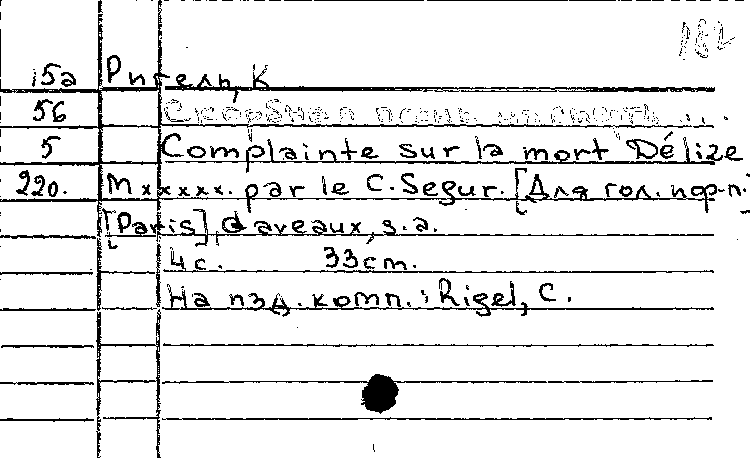 182
15a Ригель, К
56 Скорбная песнь на смерть ...
5 Complainte sur la mort Délize
220. M xxxxxx. par le C. Segur. [Для гол. и ф-п.]
[Paris], daveaux, s.a.
4 с. 33 cm.
На изд. комп.: Rigel, C.